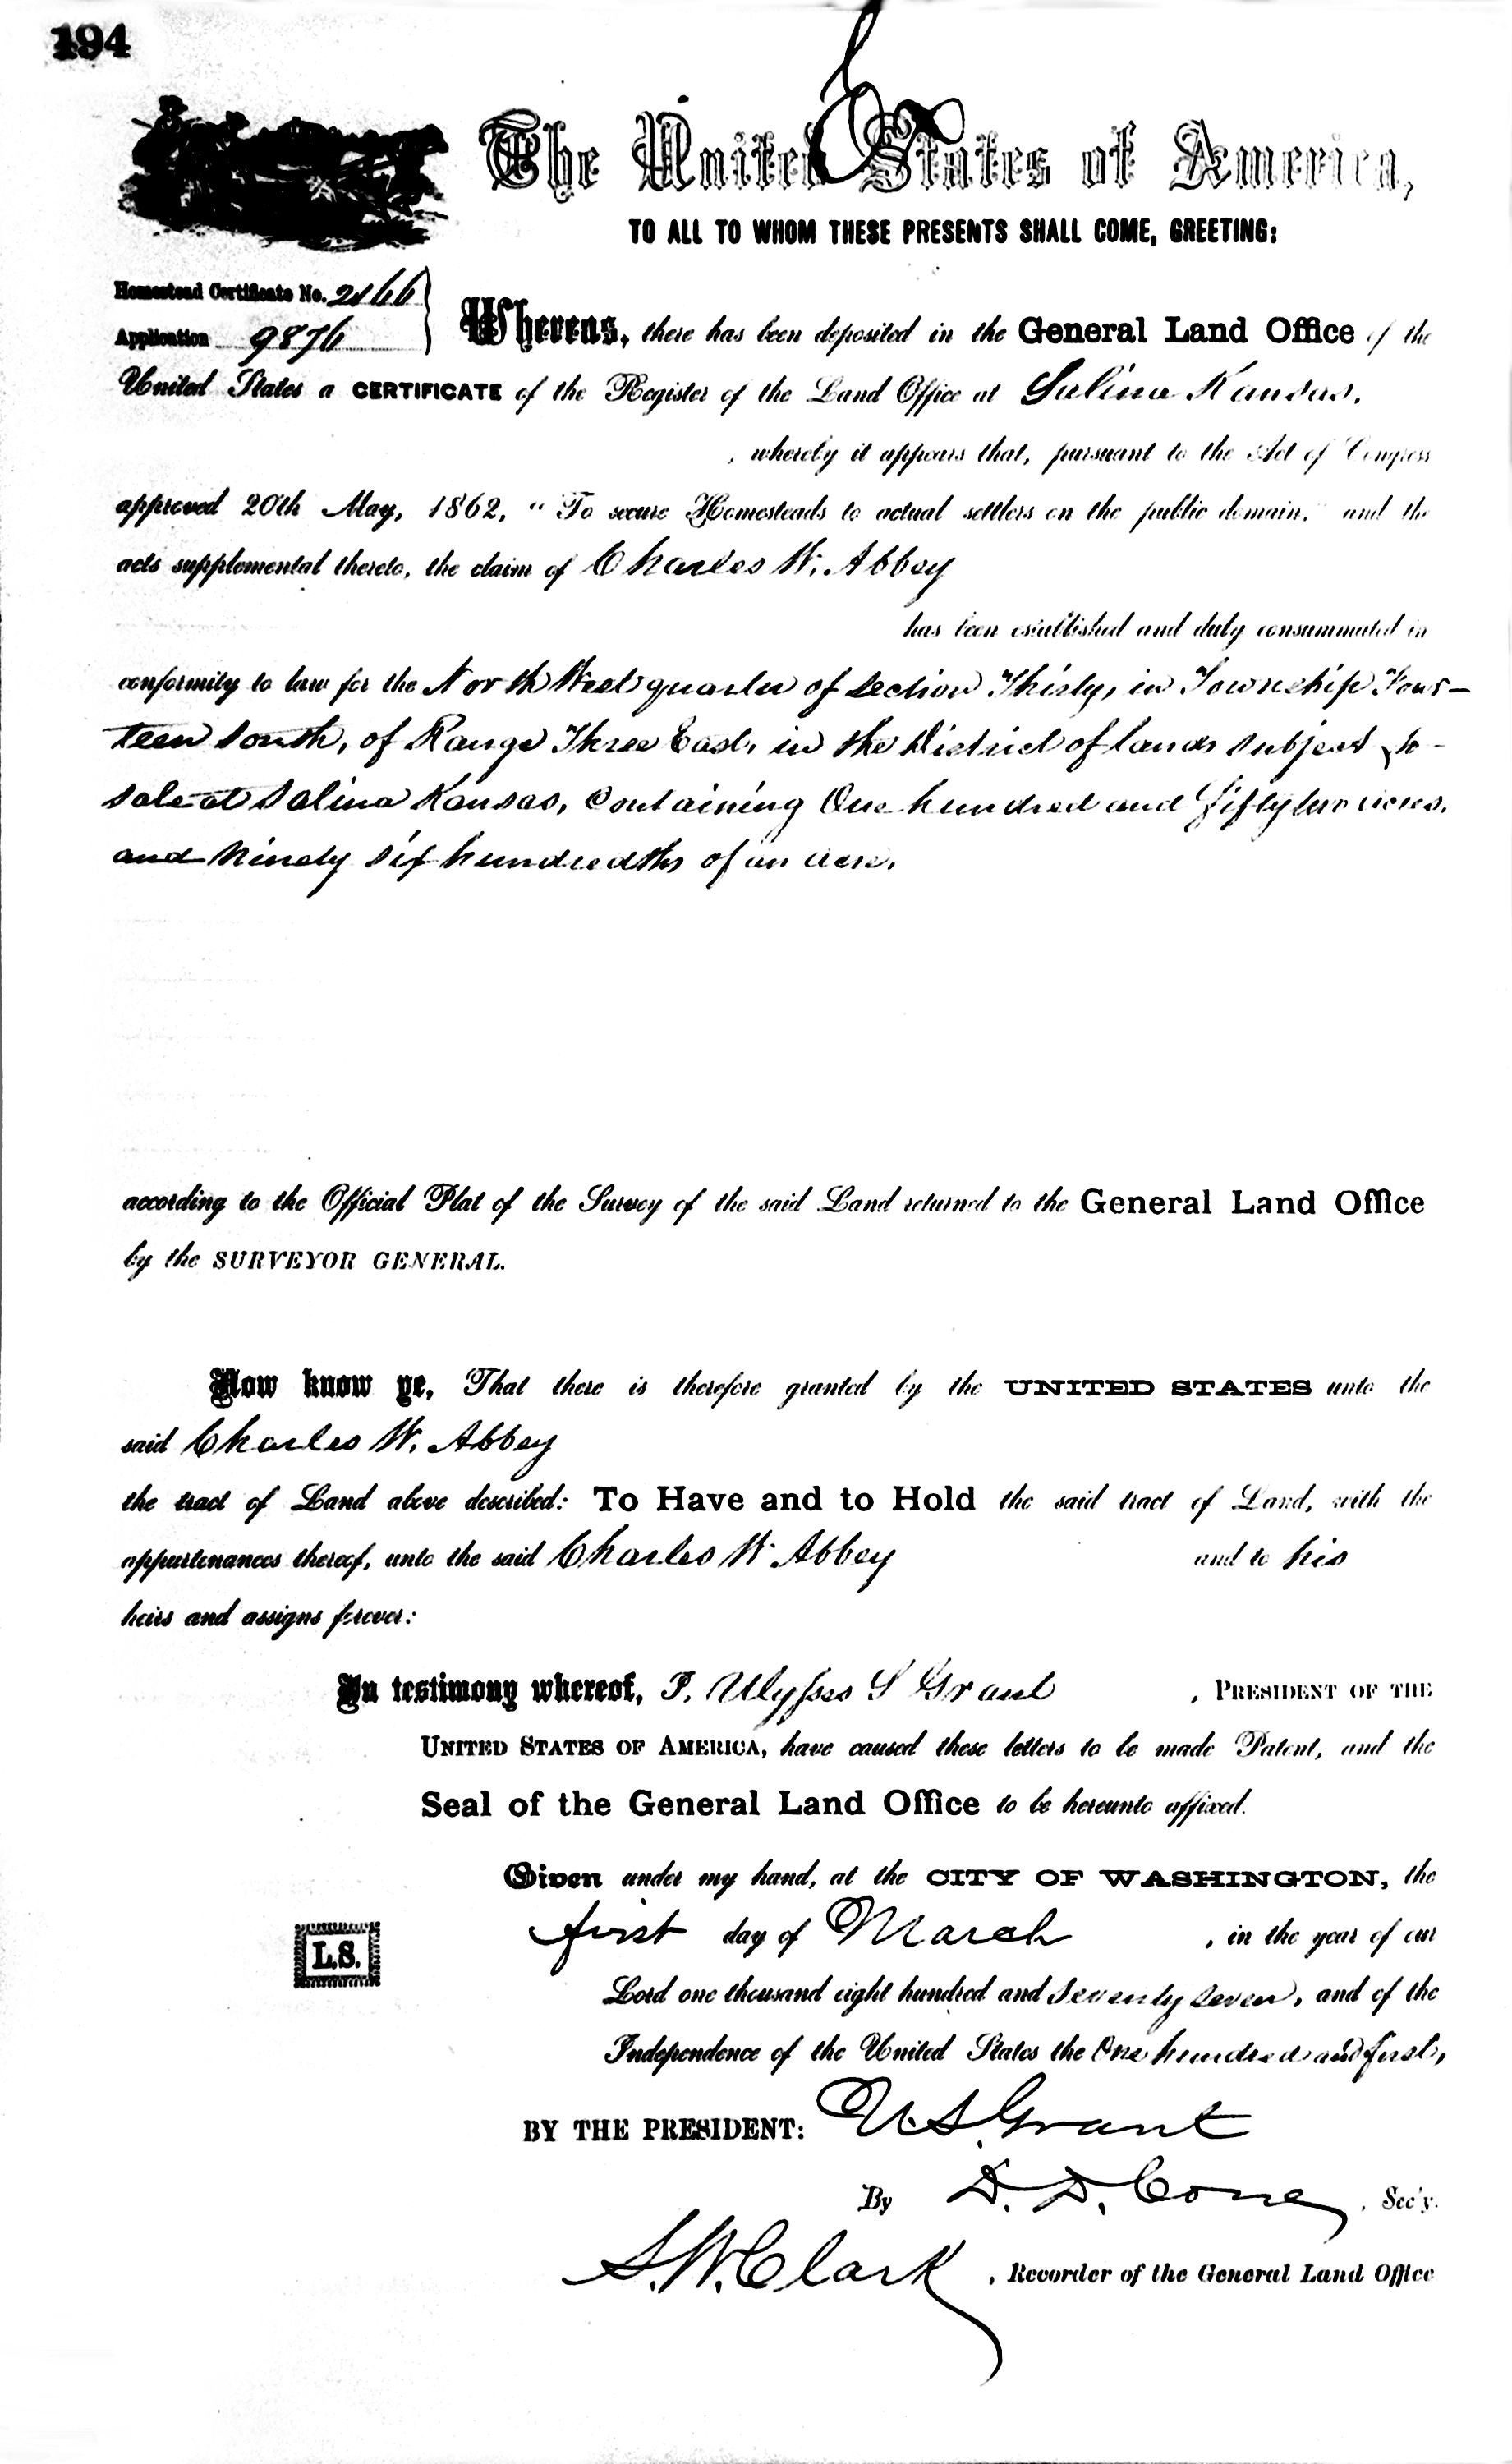 194
The United States of America,
TO ALL TO WHOM THESE PRESENTS SHALL COME, GREETING:
Homestead Certificate No. 2166
Application 9876
Whereas, there has been deposited in the General Land Office of the
United States a CERTIFICATE of the Register of the Land Office at Salina Kansas.
, whereby it appears that, pursuant to the Act of Congress
approved 20th May, 1862, "To secure Homesteads to actual settlers on the public domain," and the
acts supplemental thereto, the claim of Charles W. Abbey
has been established and duly consummated in
conformity to law for the North West quarter of Section Thirty, in Township Four-
teen South, of Range Three East, in the District of lands subject to
sale at Salina Kansas, Containing One hundred and fifty two acres.
and Ninety six hundredths of an acre.
according to the Official Plat of the Survey of the said Land returned to the General Land Office
by the SURVEYOR GENERAL.
Now know ye, That there is therefore granted by the UNITED STATES unto the
said Charles W. Abbey
the tract of Land above described: To Have and to Hold the said tract of Land, with the
appurtenances thereof, unto the said Charles W. Abbey and to his
heirs and assigns forever:
In testimony whereof, I, Ulysses S Grant , PRESIDENT OF THE
UNITED STATES OF AMERICA, have caused these letters to be made Patent, and the
Seal of the General Land Office to be hereunto affixed.
Given under my hand, at the CITY OF WASHINGTON, the
first day of March , in the year of our
L.S.
Lord one thousand eight hundred and Seventy Seven, and of the
Independence of the United States the One hundred and first,
BY THE PRESIDENT: U.S. Grant
By D. D. Cone , Sec'y.
S. W. Clark , Recorder of the General Land Office